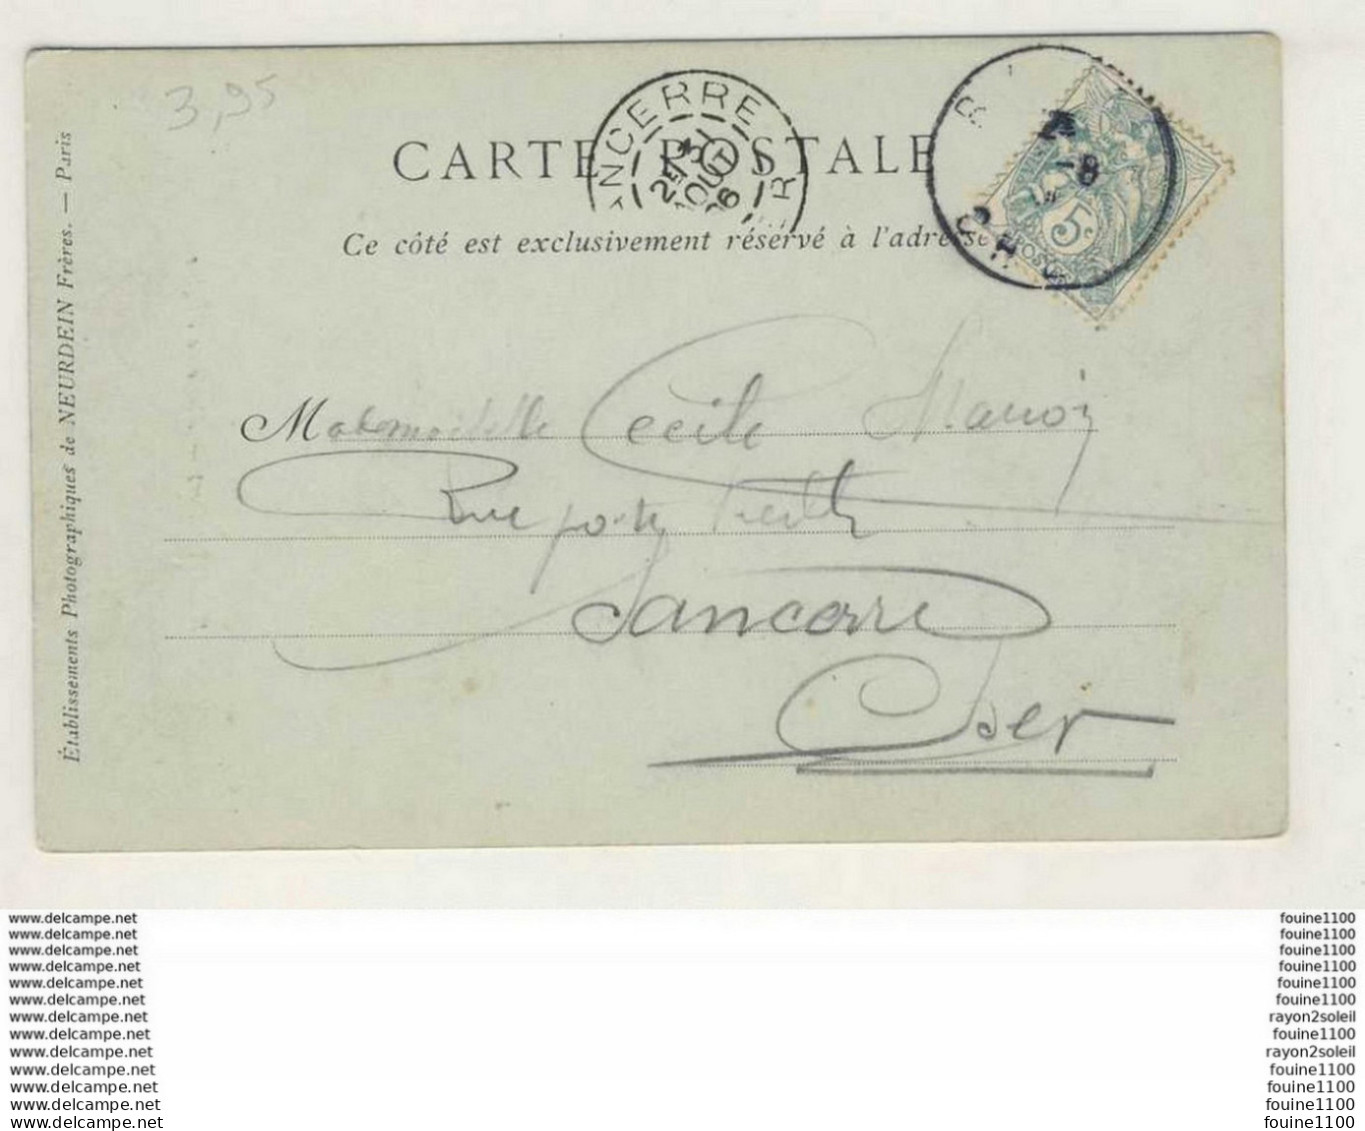 3,95
CARTE POSTALE
Ce côté est exclusivement réservé à l'adresse
Établissements Photographiques de NEURDEIN Frères. — Paris
NCERRE
2E
AOUT
06
-8
5c
Mademoiselle Cecile
Rue porte
Sancerre
Cher
www.delcampe.net
www.delcampe.net
www.delcampe.net
www.delcampe.net
www.delcampe.net
www.delcampe.net
www.delcampe.net
www.delcampe.net
www.delcampe.net
www.delcampe.net
www.delcampe.net
www.delcampe.net
www.delcampe.net
fouine1100
fouine1100
fouine1100
fouine1100
fouine1100
fouine1100
rayon2soleil
fouine1100
rayon2soleil
fouine1100
fouine1100
fouine1100
fouine1100